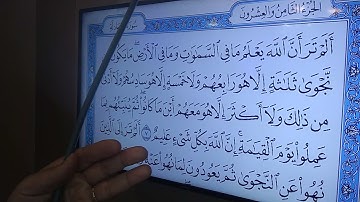 الجزء الثامن والعشرون
أَلَمْ تَرَ أَنَّ ٱللَّهَ يَعْلَمُ مَا فِي ٱلسَّمَٰوَٰتِ وَمَا فِي ٱلْأَرْضِ مَا يَكُونُ
نَّجْوَىٰ ثَلَٰثَةٍ إِلَّا هُوَ رَابِعُهُمْ وَلَا خَمْسَةٍ إِلَّا هُوَ سَادِسُهُمْ وَلَا أَدْنَىٰ
مِن ذَٰلِكَ وَلَا أَكْثَرَ إِلَّا هُوَ مَعَهُمْ أَيْنَ مَا كَانُوا۟ ثُمَّ يُنَبِّئُهُم بِمَا
عَمِلُوا۟ يَوْمَ ٱلْقِيَٰمَةِ إِنَّ ٱللَّهَ بِكُلِّ شَيْءٍ عَلِيمٌ أَلَمْ تَرَ إِلَى ٱلَّذِينَ
نُهُوا۟ عَنِ ٱلنَّجْوَىٰ ثُمَّ يَعُودُونَ لِمَا نُهُوا۟ عَنْهُ